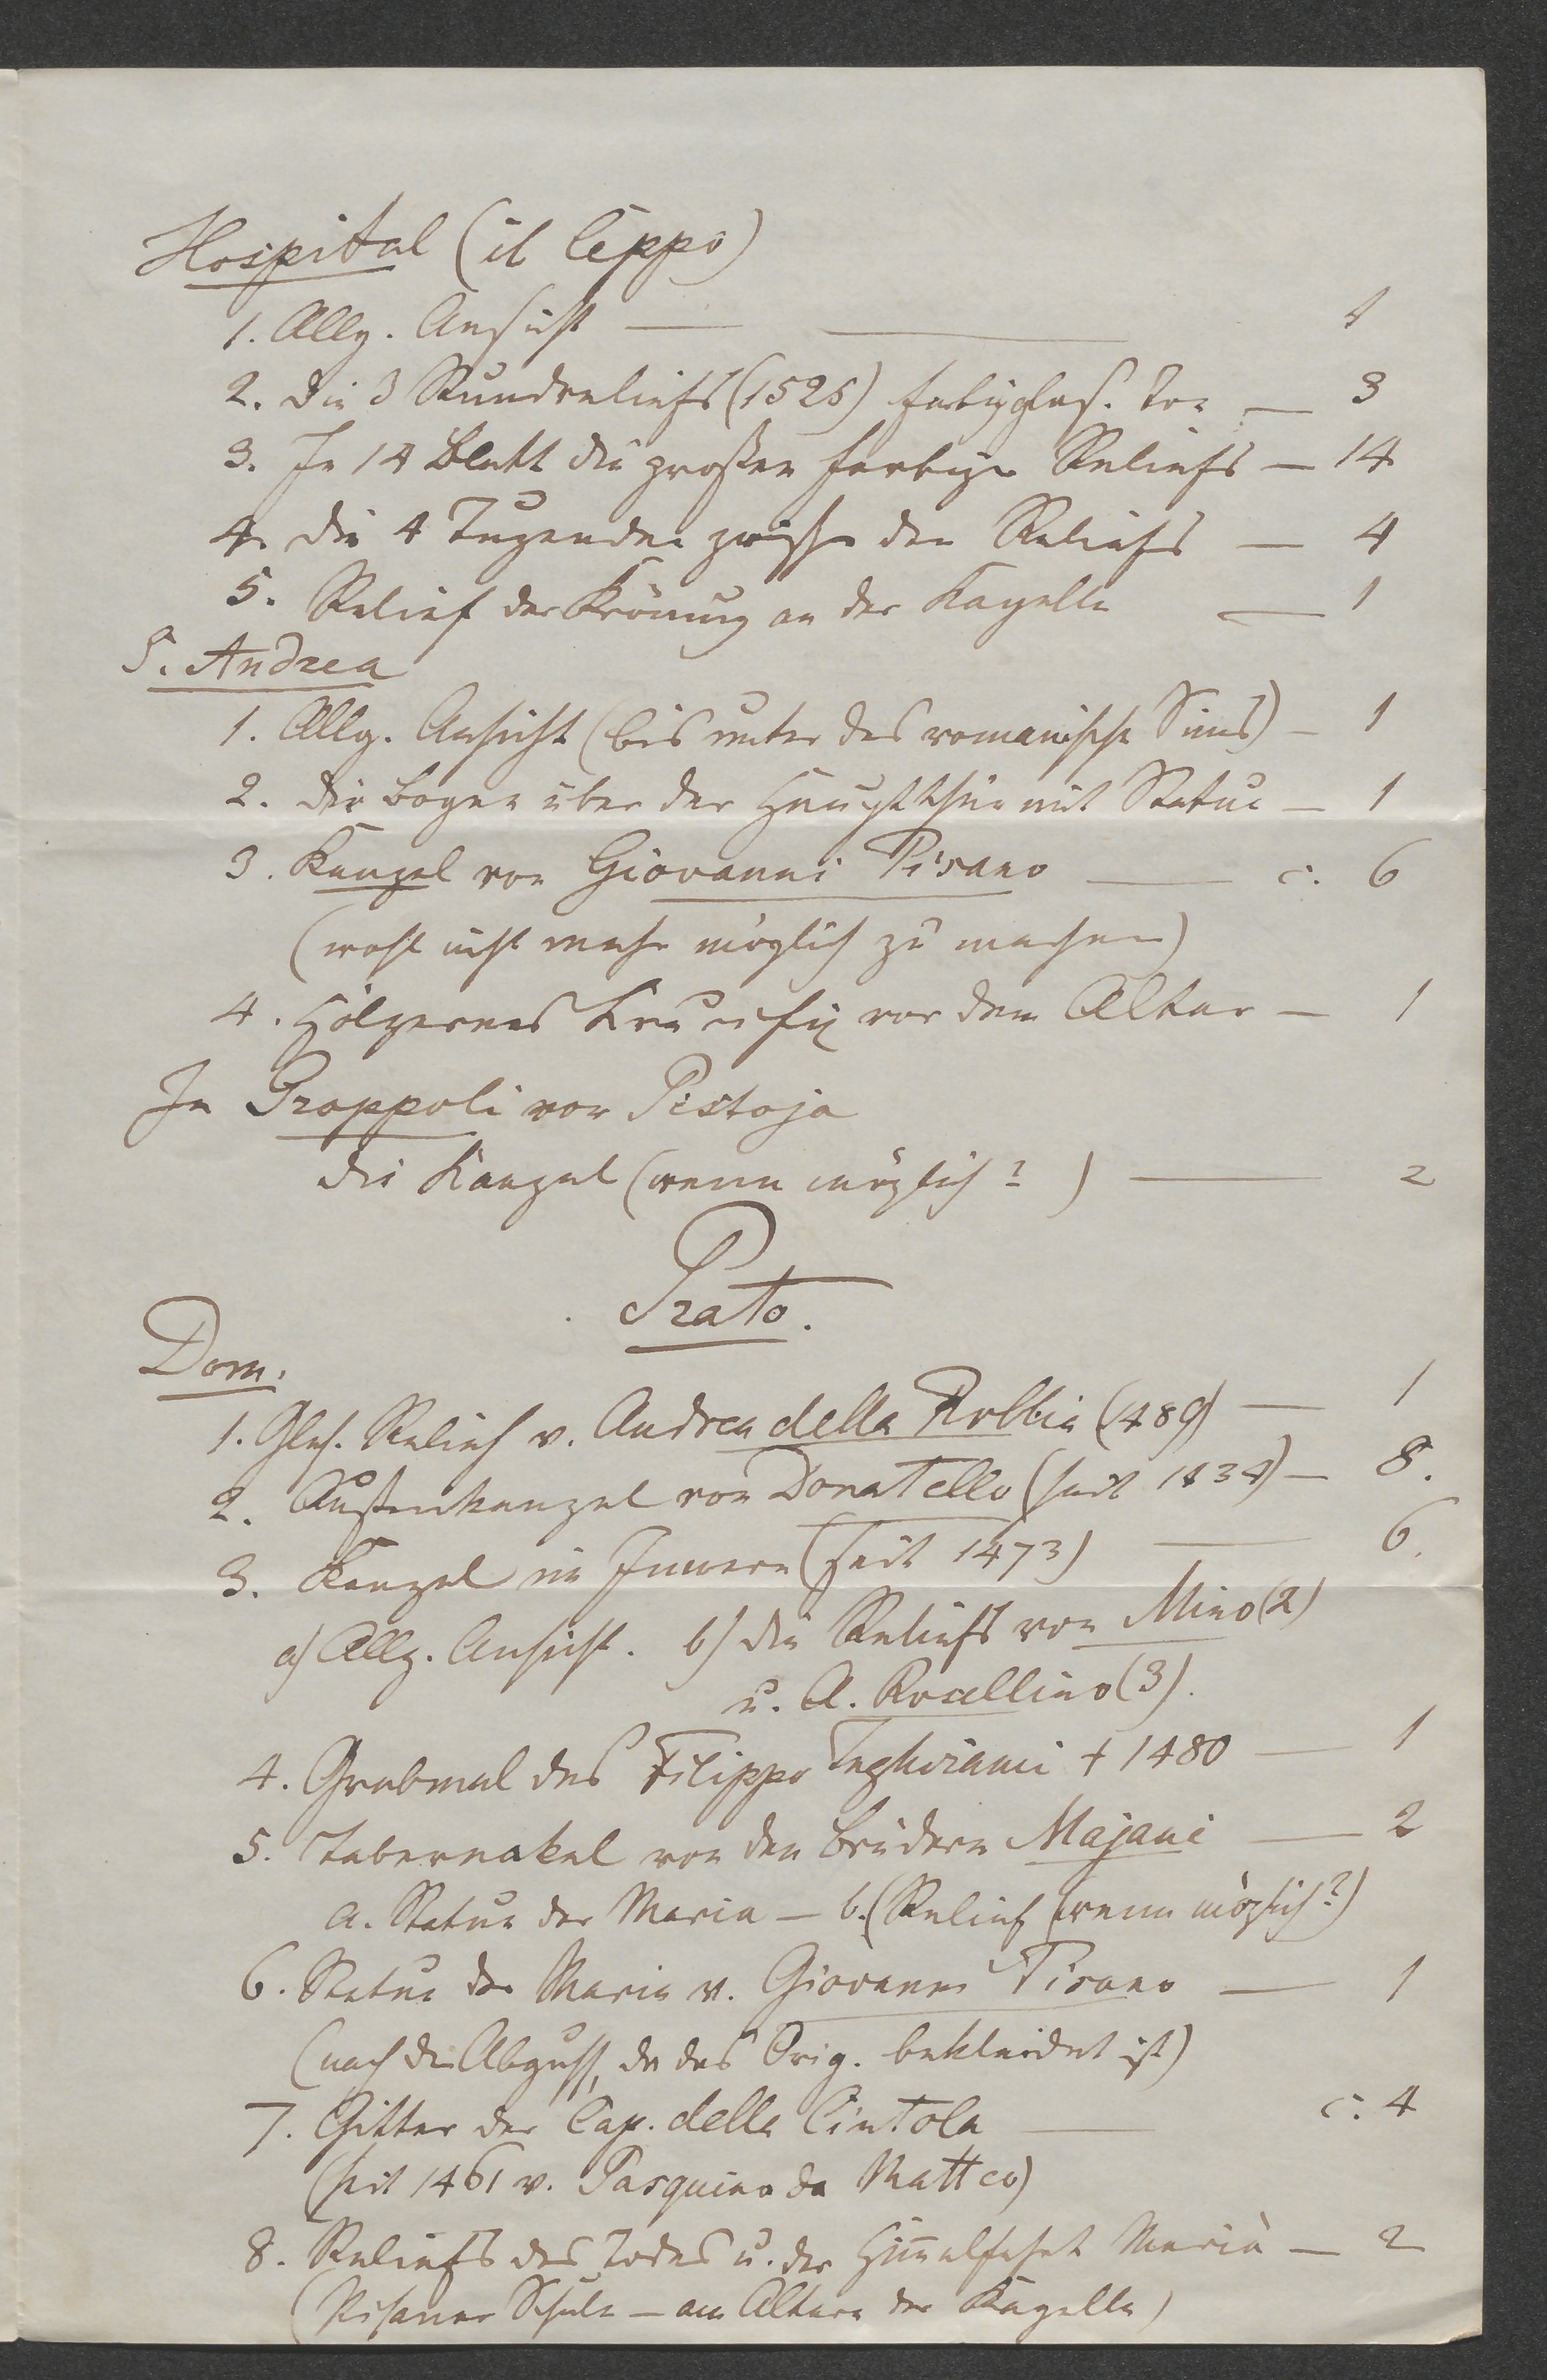 Hospital (il Ceppo)
1. Allg. Ansicht — — 1
2. die 3 Rundreliefs (1525) farbig glas. Ton — 3
3. In 14 Blatt die großen farbigen Reliefs — 14
4. die 4 Tugenden zwischen den Reliefs — 4
5. Relief der Krönung an der Kapelle — 1
S. Andrea
1. Allg. Ansicht (bis unter das romanische Sims) — 1
2. der Bogen über der Hauptthür mit Statue — 1
3. Kanzel von Giovanni Pisano — c. 6
(wohl nicht mehr möglich zu machen)
4. Hölzernes Krucifix vor dem Altar — 1
In Groppoli vor Pistoja
die Kanzel (wenn möglich?) — 2
Prato.
Dom.
1. Glas. Relief v. Andrea della Robbia (1489) — 1
2. Außenkanzel von Donatello (seit 1434) — 8.
3. Kanzel im Innern (seit 1473) — 6.
a) Allg. Ansicht. b) die Reliefs von Mino (2)
u. A. Rosellino (3).
4. Grabmal des Filippo Inghirami † 1480 — 1
5. Tabernakel von den Brüdern Majani — 2
a. Statue der Maria — b. (Relief (wenn möglich?)
6. Statue der Maria v. Giovanni Pisano — 1
(nach dem Abguss, da das Orig. bekleidet ist)
7. Gitter der Cap. della Cintola — c. 4
(seit 1461 v. Pasquino da Matteo)
8. Reliefs des Todes u. der Himmelfahrt Mariä — 2
(Pisaner Schule — am Altare der Kapelle)